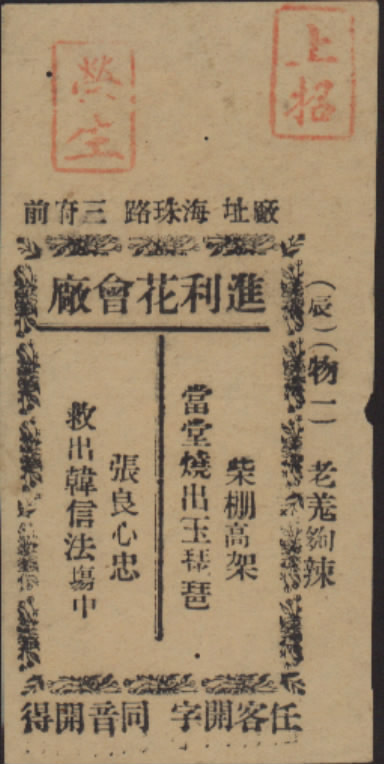 上招
榮生
廠址 海珠路 三府前
進利花會廠
(辰)(物一) 老羌夠辣
柴棚高架
當堂燒出玉琵琶
張良心忠
救出韓信法塲中
任客開字 同音開得